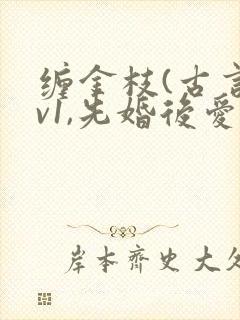 缠金枝(古言
v1,先婚後愛
岸本齊史大久